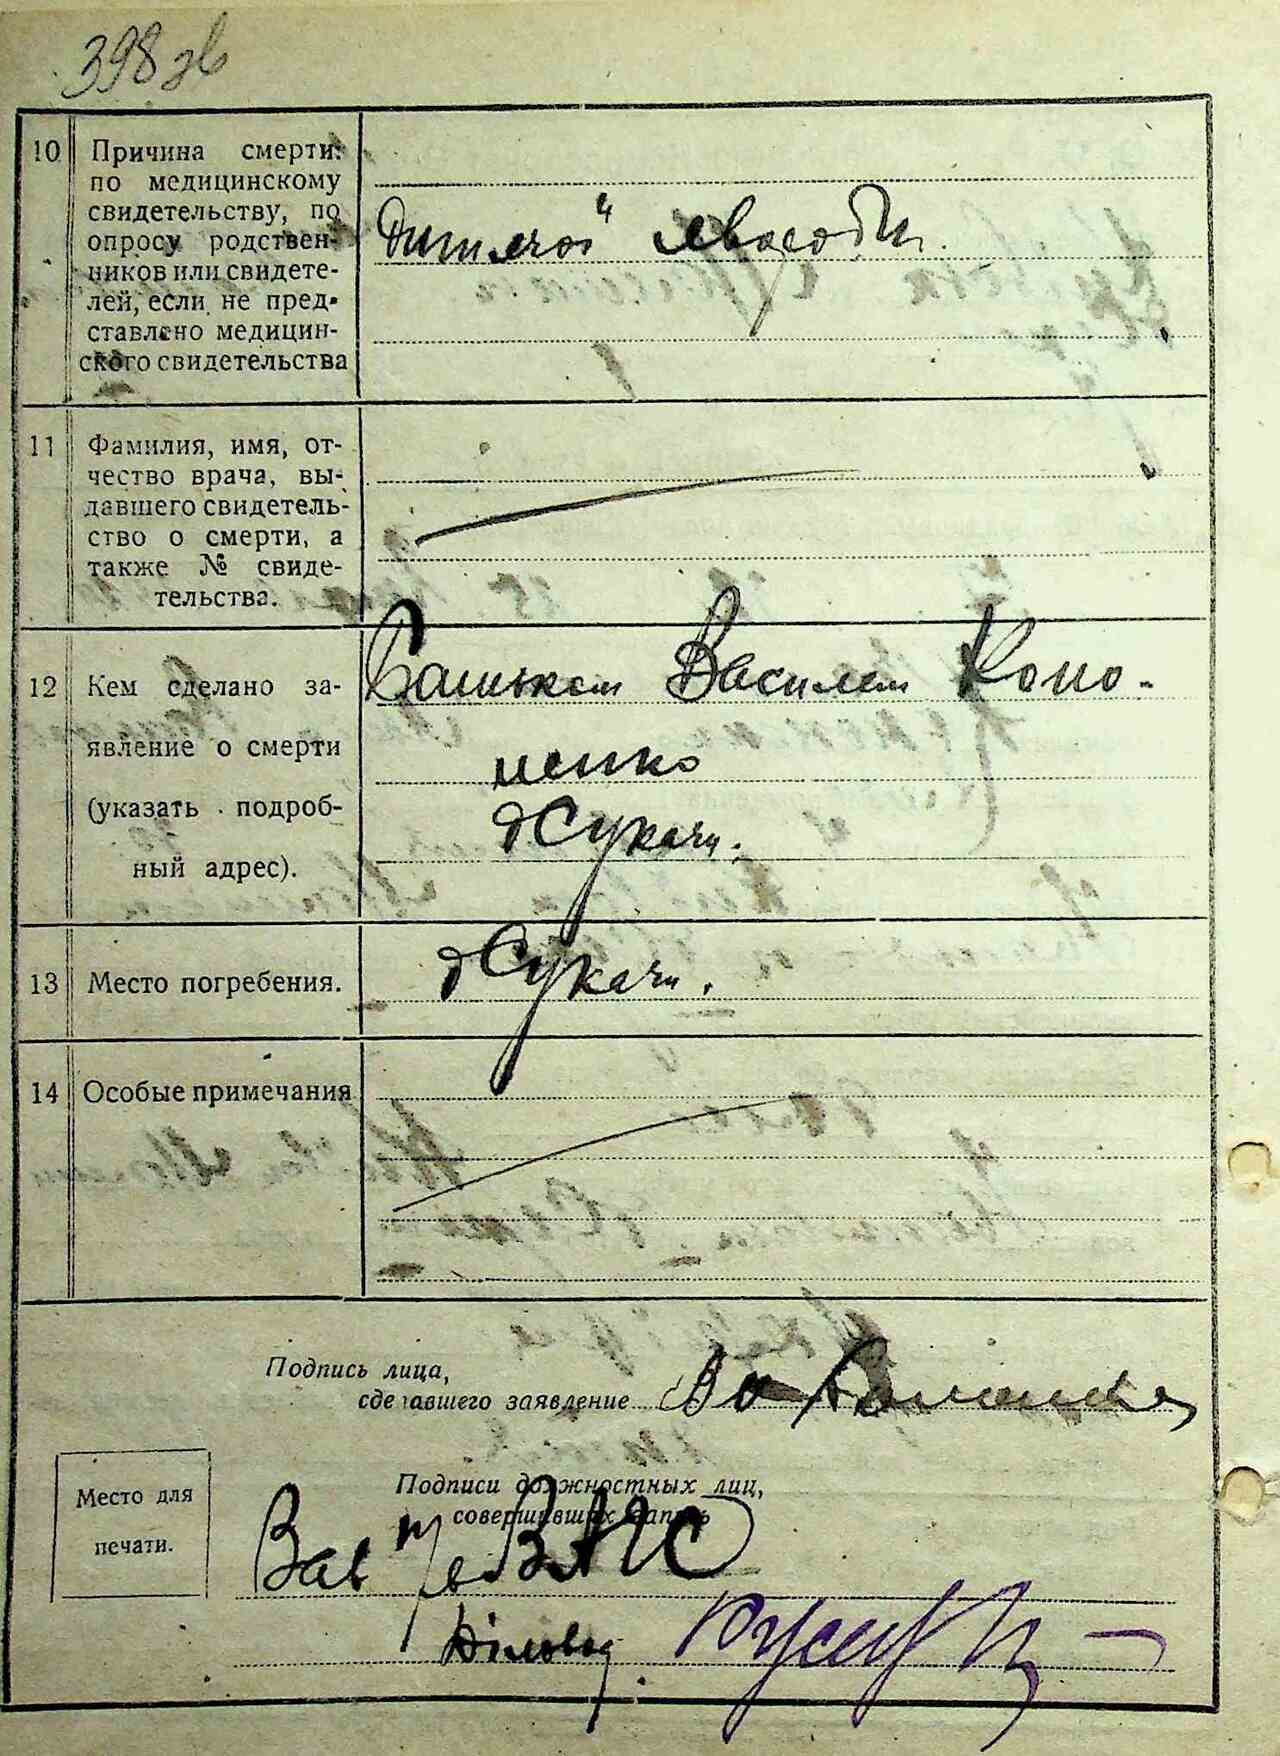 398 зв
10 Причина смерти:
по медицинскому
свидетельству, по
опросу родствен-
ников или свидете-
лей, если не пред-
ставлено медицин-
ского свидетельства
дитячої хвороби.
11 Фамилия, имя, от-
чество врача, вы-
давшего свидетель-
ство о смерти, а
также № свиде-
тельства.
12 Кем сделано за-
явление о смерти
(указать подроб-
ный адрес).
Батьком Василем Коно-
ненко
Сукачи.
13 Место погребения.
Сукачи.
14 Особые примечания
Подпись лица,
сделавшего заявление
Подписи должностных лиц,
совершивших запись
Место для
печати.
Зав
Діловод